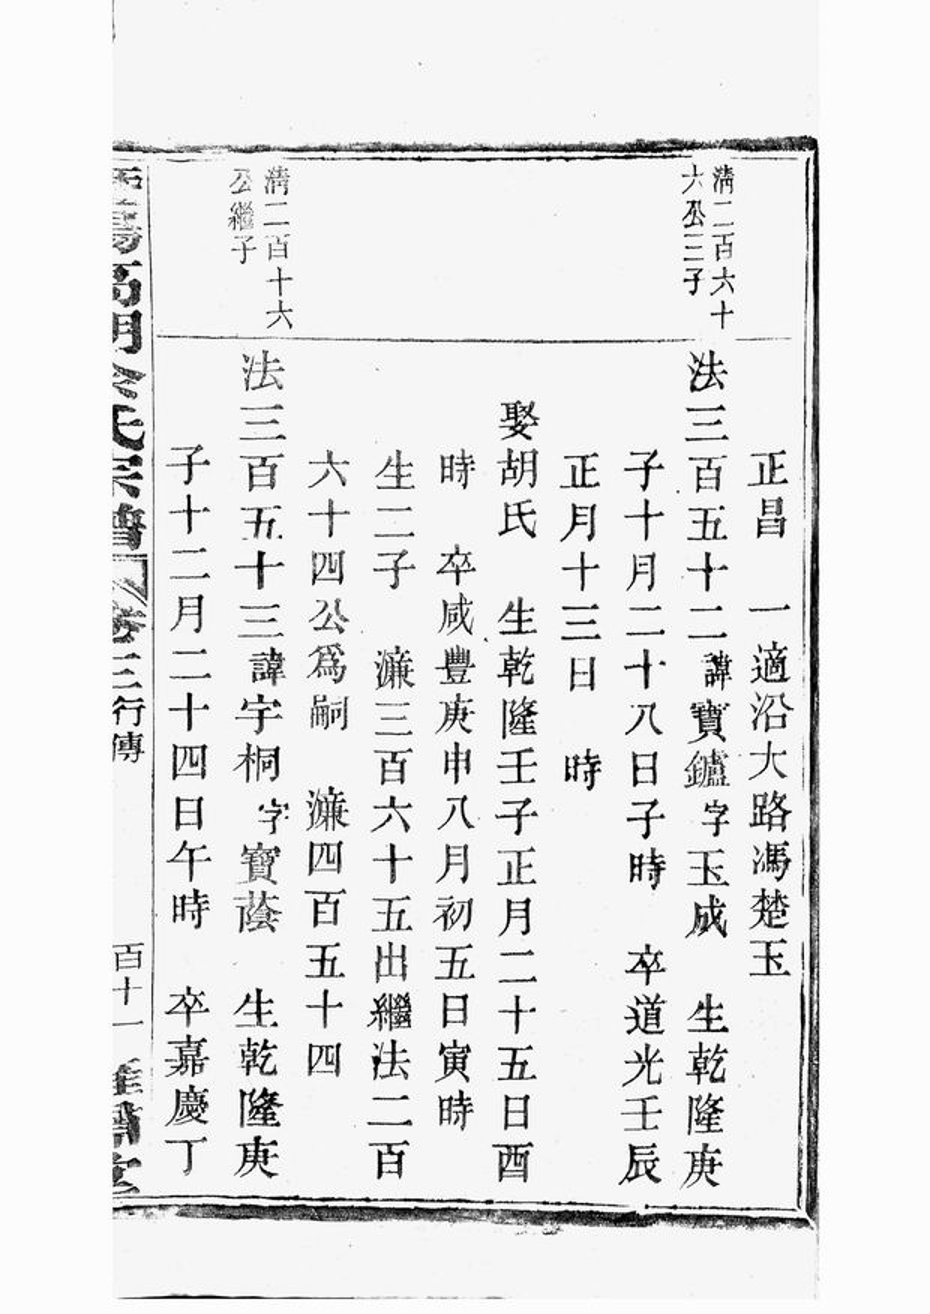 正昌　一適沿大路馮楚玉
清二百六十
六公三子
法三百五十二諱寶鑪字玉成　生乾隆庚
子十月二十八日子時　卒道光壬辰
正月十三日　時
娶胡氏　生乾隆壬子正月二十五日酉
時　卒咸豐庚申八月初五日寅時
生二子　濂三百六十五出繼法二百
六十四公爲嗣　濂四百五十四
清二百十六
公繼子
法三百五十三諱宇桐字寶蔭　生乾隆庚
子十二月二十四日午時　卒嘉慶丁
高明余氏宗譜　卷三行傳　百十一